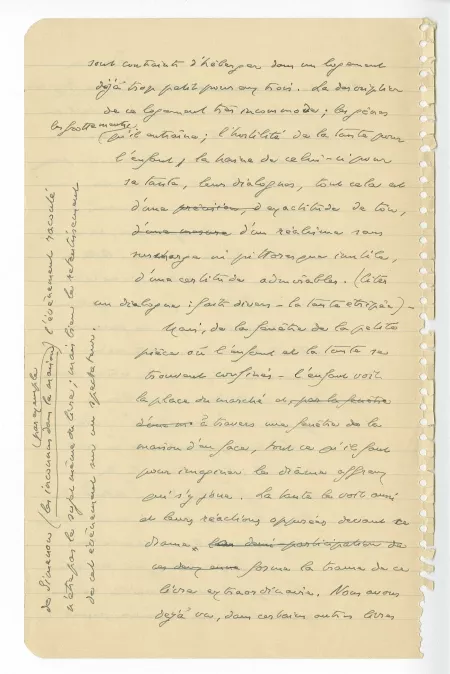 sont contraints d'héberger dans un logement
déjà trop petit pour eux trois. La description
de ce logement très incommode; les gênes
les frottements
qu'il entraîne; l'hostilité de la tante pour
l'enfant, la haine de celui-ci pour
sa tante, leurs dialogues, tout cela est
d'une précision, d'exactitude de ton,
d'une mesure d'un réalisme sans
surcharge ni pittoresque inutile,
d'une certitude admirables. (Citer
un dialogue : faits divers - la tante étripée) -
Mais, de la fenêtre de la petite
pièce où l'enfant et la tante se
trouvent confinés - l'enfant voit
la place du marché et, par la fenêtre
d'une à travers une fenêtre de la
maison d'en face, tout ce qu'il faut
pour imaginer le drame affreux
qui s'y joue. La tante le voit aussi
et leurs réactions opposées devant ce
drame, demi-participation de
ces deux forme la trame de ce
livre extraordinaire. Nous avons
déjà vu, dans certains autres livres
de Simenon (les inconnus dans la maison) l'événement raconté
par exemple
n'être pas le sujet même du livre; mais bien le retentissement
de cet événement sur un spectateur.